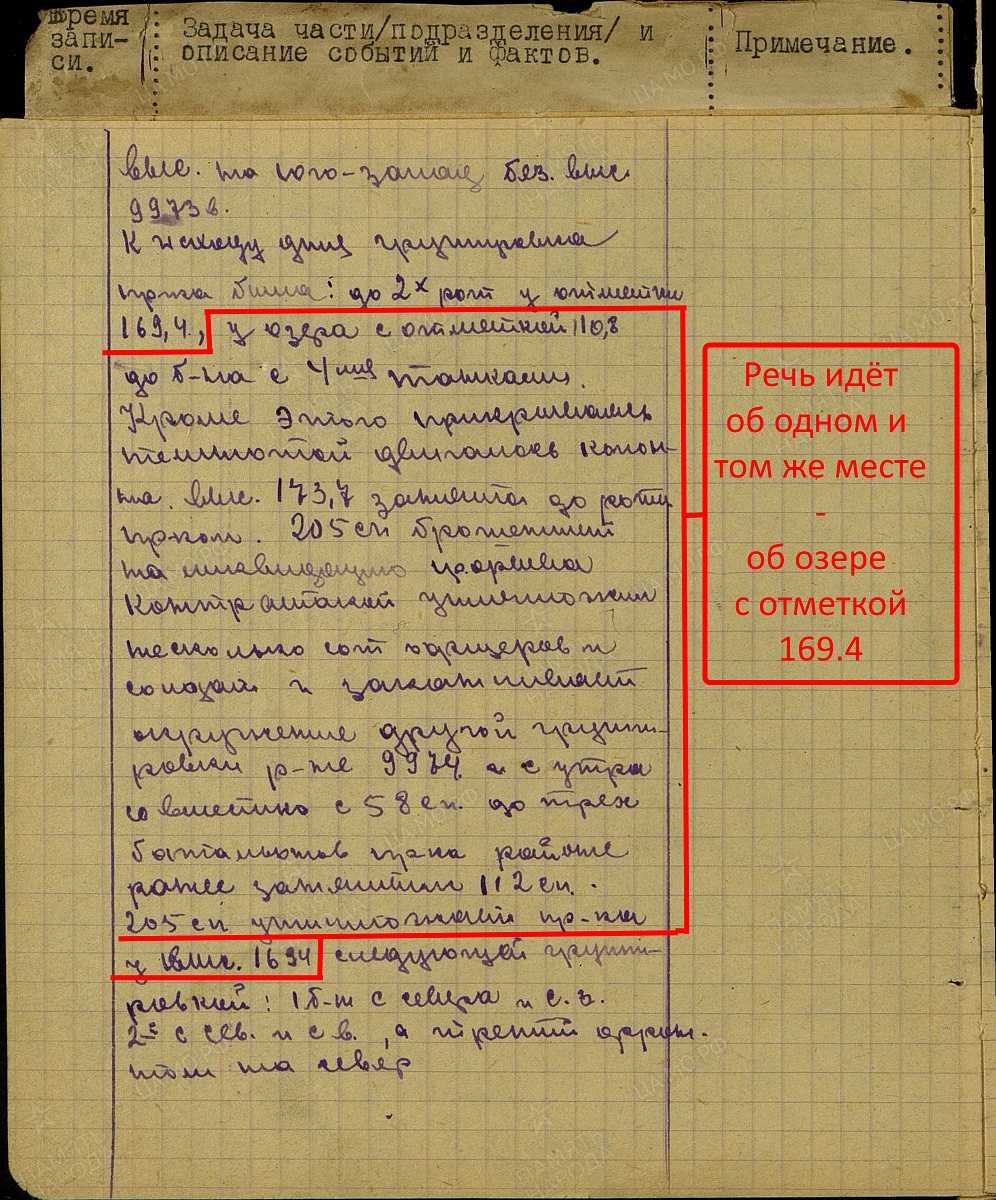 Время
запи-
си.
Задача части/подразделения/ и
описание событий и фактов.
Примечание.
выс. на юго-запад без. выс.
9973в.
К исходу дня группировка
пр-ка была: до 2х рот у отметки
169,4, у озера с отметкой 110,8
до б-на с 4мя танками.
Кроме этого прикрываясь
темнотой двигалась колон-
на. выс. 173,7 занята до роты
пр-ком. 205 сп брошенный
на ликвидацию прорыва
Контратакой уничтожил
несколько сот офицеров и
солдат и заканчивает
окружение другой группи-
ровки р-не 9974 а с утра
совместно с 58 сп. до трех
батальонов пр-ка районе
ранее занятым 112 сп.
205 сп уничтожает пр-ка
у выс. 1694 следующей группи-
ровкой: 1 б-н с севера и с.з.
2-й с сев. и с.в., а третий фрон-
том на север
Речь идёт
об одном и
том же месте
-
об озере
с отметкой
169.4